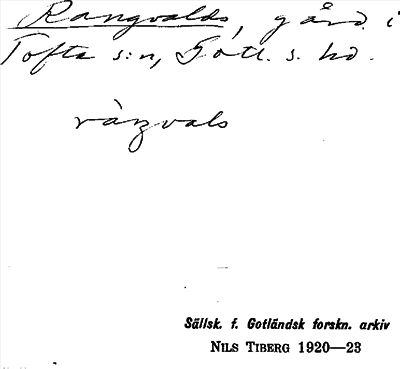 Rangvalds, gård i
Tofta s:n, Gotl. s. hd.
ràŋvals
Sällsk. f. Gotländsk forskn. arkiv
NILS TIBERG 1920—23